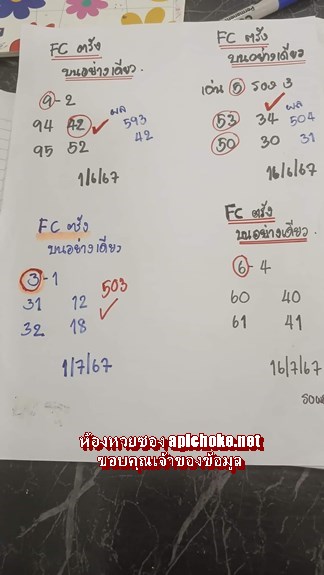 FC ตรัง
บนอย่างเดียว.
9-2
94 42 ผล 593
95 52 42
1/6/67
FC ตรัง
บนอย่างเดียว
เด่น 5 รอง 3
ผล
53 34 504
50 30 31
16/6/67
FC ตรัง
บนอย่างเดียว
3-1
503
31 12
32 18
1/7/67
FC ตรัง
บนอย่างเดียว.
6-4
60 40
61 41
16/7/67
ห้องหวยซอง apichoke.net
ขอบคุณเจ้าของข้อมูล